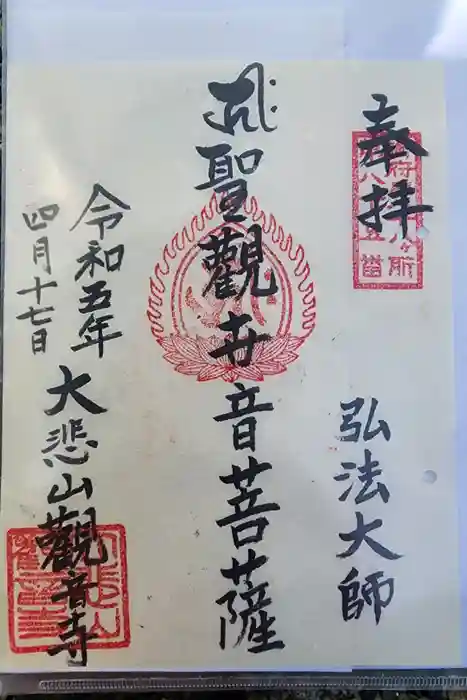 奉拝
弘法大師
聖觀世音菩薩
令和五年
四月十七日
大悲山觀音寺